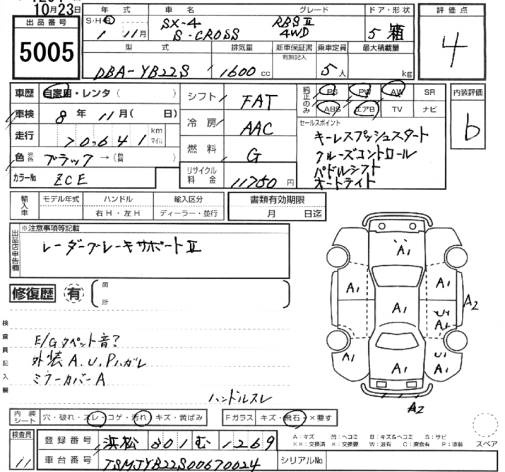 10月23日
出品番号
5005
年
S・H・R
1 11月
車名
SX-4
S-CROSS
グレード
RBSⅡ
4WD
ドア・形状
5 箱
評価点
4
型式
DBA-YB22S
排気量
1600cc
新車保証書
乗車定員
5人
最大積載量
kg
車歴
自家用・レンタ( )
車検
8年11月( 日)
走行
70,641 km
マイル
色
ブラック→( )
カラーNo
ZCE
シフト
FAT
冷房
AAC
燃料
G
リサイクル料金
11750円
純正のみ
PS PW AW SR
ABS エアB TV ナビ
セールスポイント
キーレスプッシュスタート
クルーズコントロール
パドルシフト
オートライト
内装評価
b
輸入車
モデル年式
ハンドル
右H・左H
輸入区分
ディーラー・並行
書類有効期限
月 日迄
※注意事項等記載
レーダーブレーキサポートⅡ
修復歴 有
箇所
検査員記入欄
E/Gタペット音?
外装A.U.P.ハガレ
ミラーカバーA
ハンドルスレ
A1
A1
A1
A1
A1
A1
A1
A2
A2
内装シート
穴・破れ・スレ・コゲ・汚れ
キズ・黄ばみ
Fガラス
キズ・飛石
×要す
スペア
検査員
11
登録番号
浜松 301 む 1269
車台番号
TSMJYB22S00670024
シリアルNo